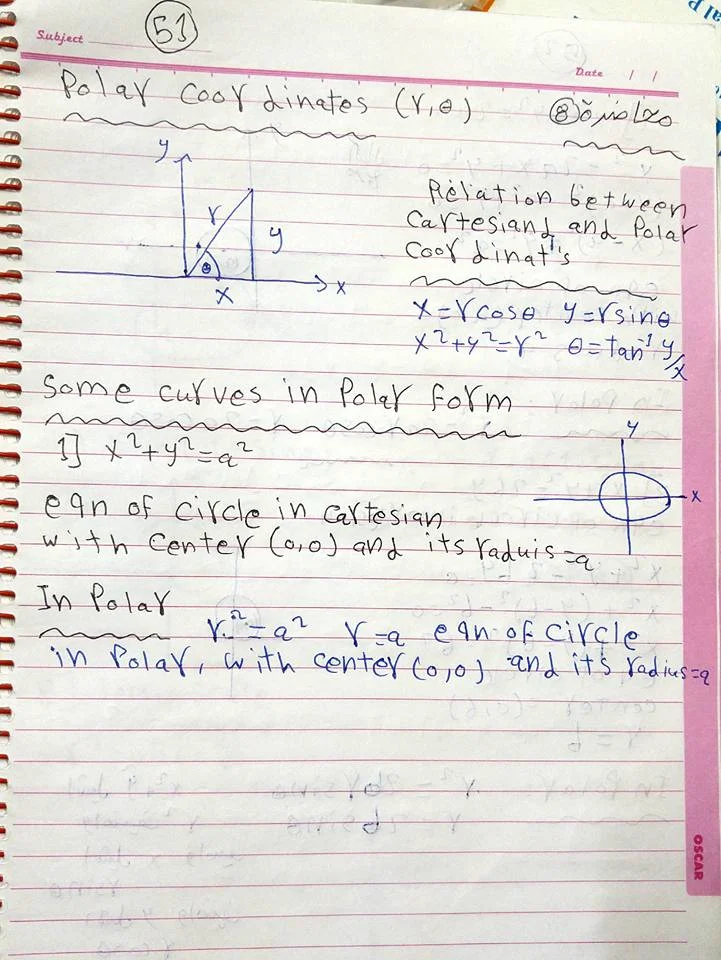 Subject
51
Date / /
Polar coordinates (r,θ)
محاضرة 8
y
r
y
θ
x
x
Relation between
Cartesiand and Polar
Coordinat's
x=rcosθ y=rsinθ
x²+y²=r² θ=tan⁻¹ y/x
Some curves in Polar form
1] x²+y²=a²
y
x
eqn of circle in cartesian
with center (0,0) and its raduis=a
In Polar
r²=a² r=a eqn of circle
in Polar, with center (0,0) and its radius=a
OSCAR